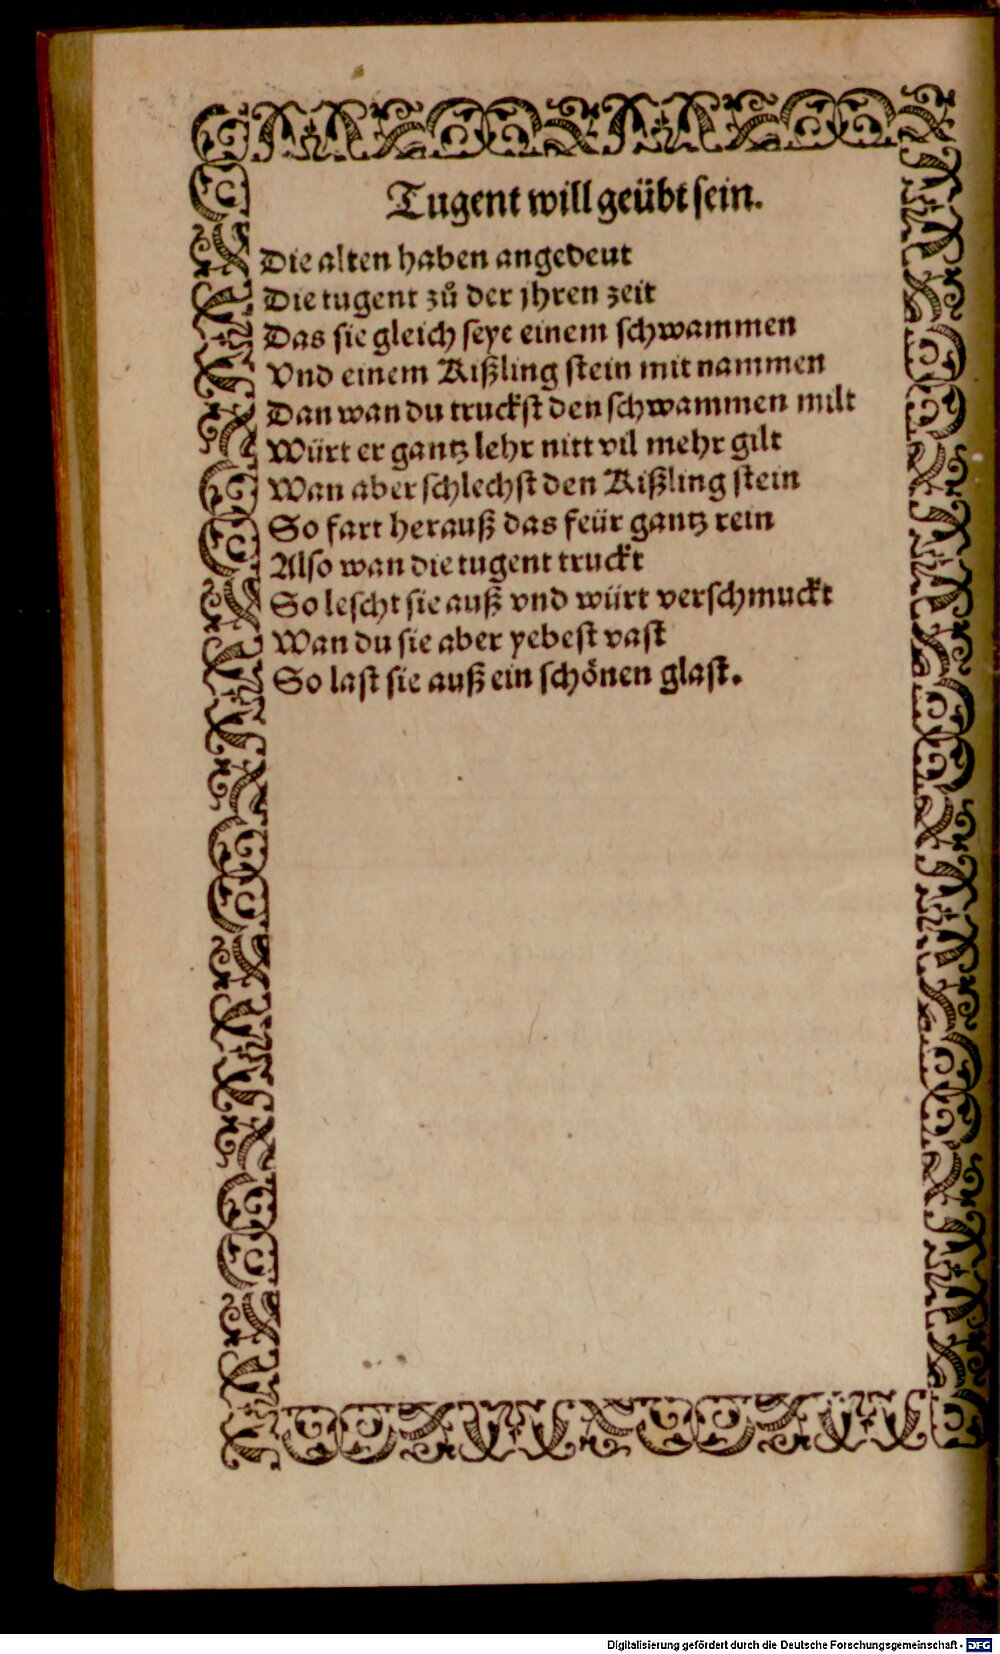 Tugent will geübt sein.
Die alten haben angedeut
Die tugent zů der jhren zeit
Das sie gleich seye einem schwammen
Vnd einem Kißling stein mit nammen
Dan wan du truckst den schwammen milt
Würt er gantz lehr nitt vil mehr gilt
Wan aber schlechst den Kißling stein
So fart herauß das feür gantz rein
Also wan die tugent truckt
So lescht sie auß vnd würt verschmuckt
Wan du sie aber yebest vast
So last sie auß ein schönen glast.
Digitalisierung gefördert durch die Deutsche Forschungsgemeinschaft - DFG